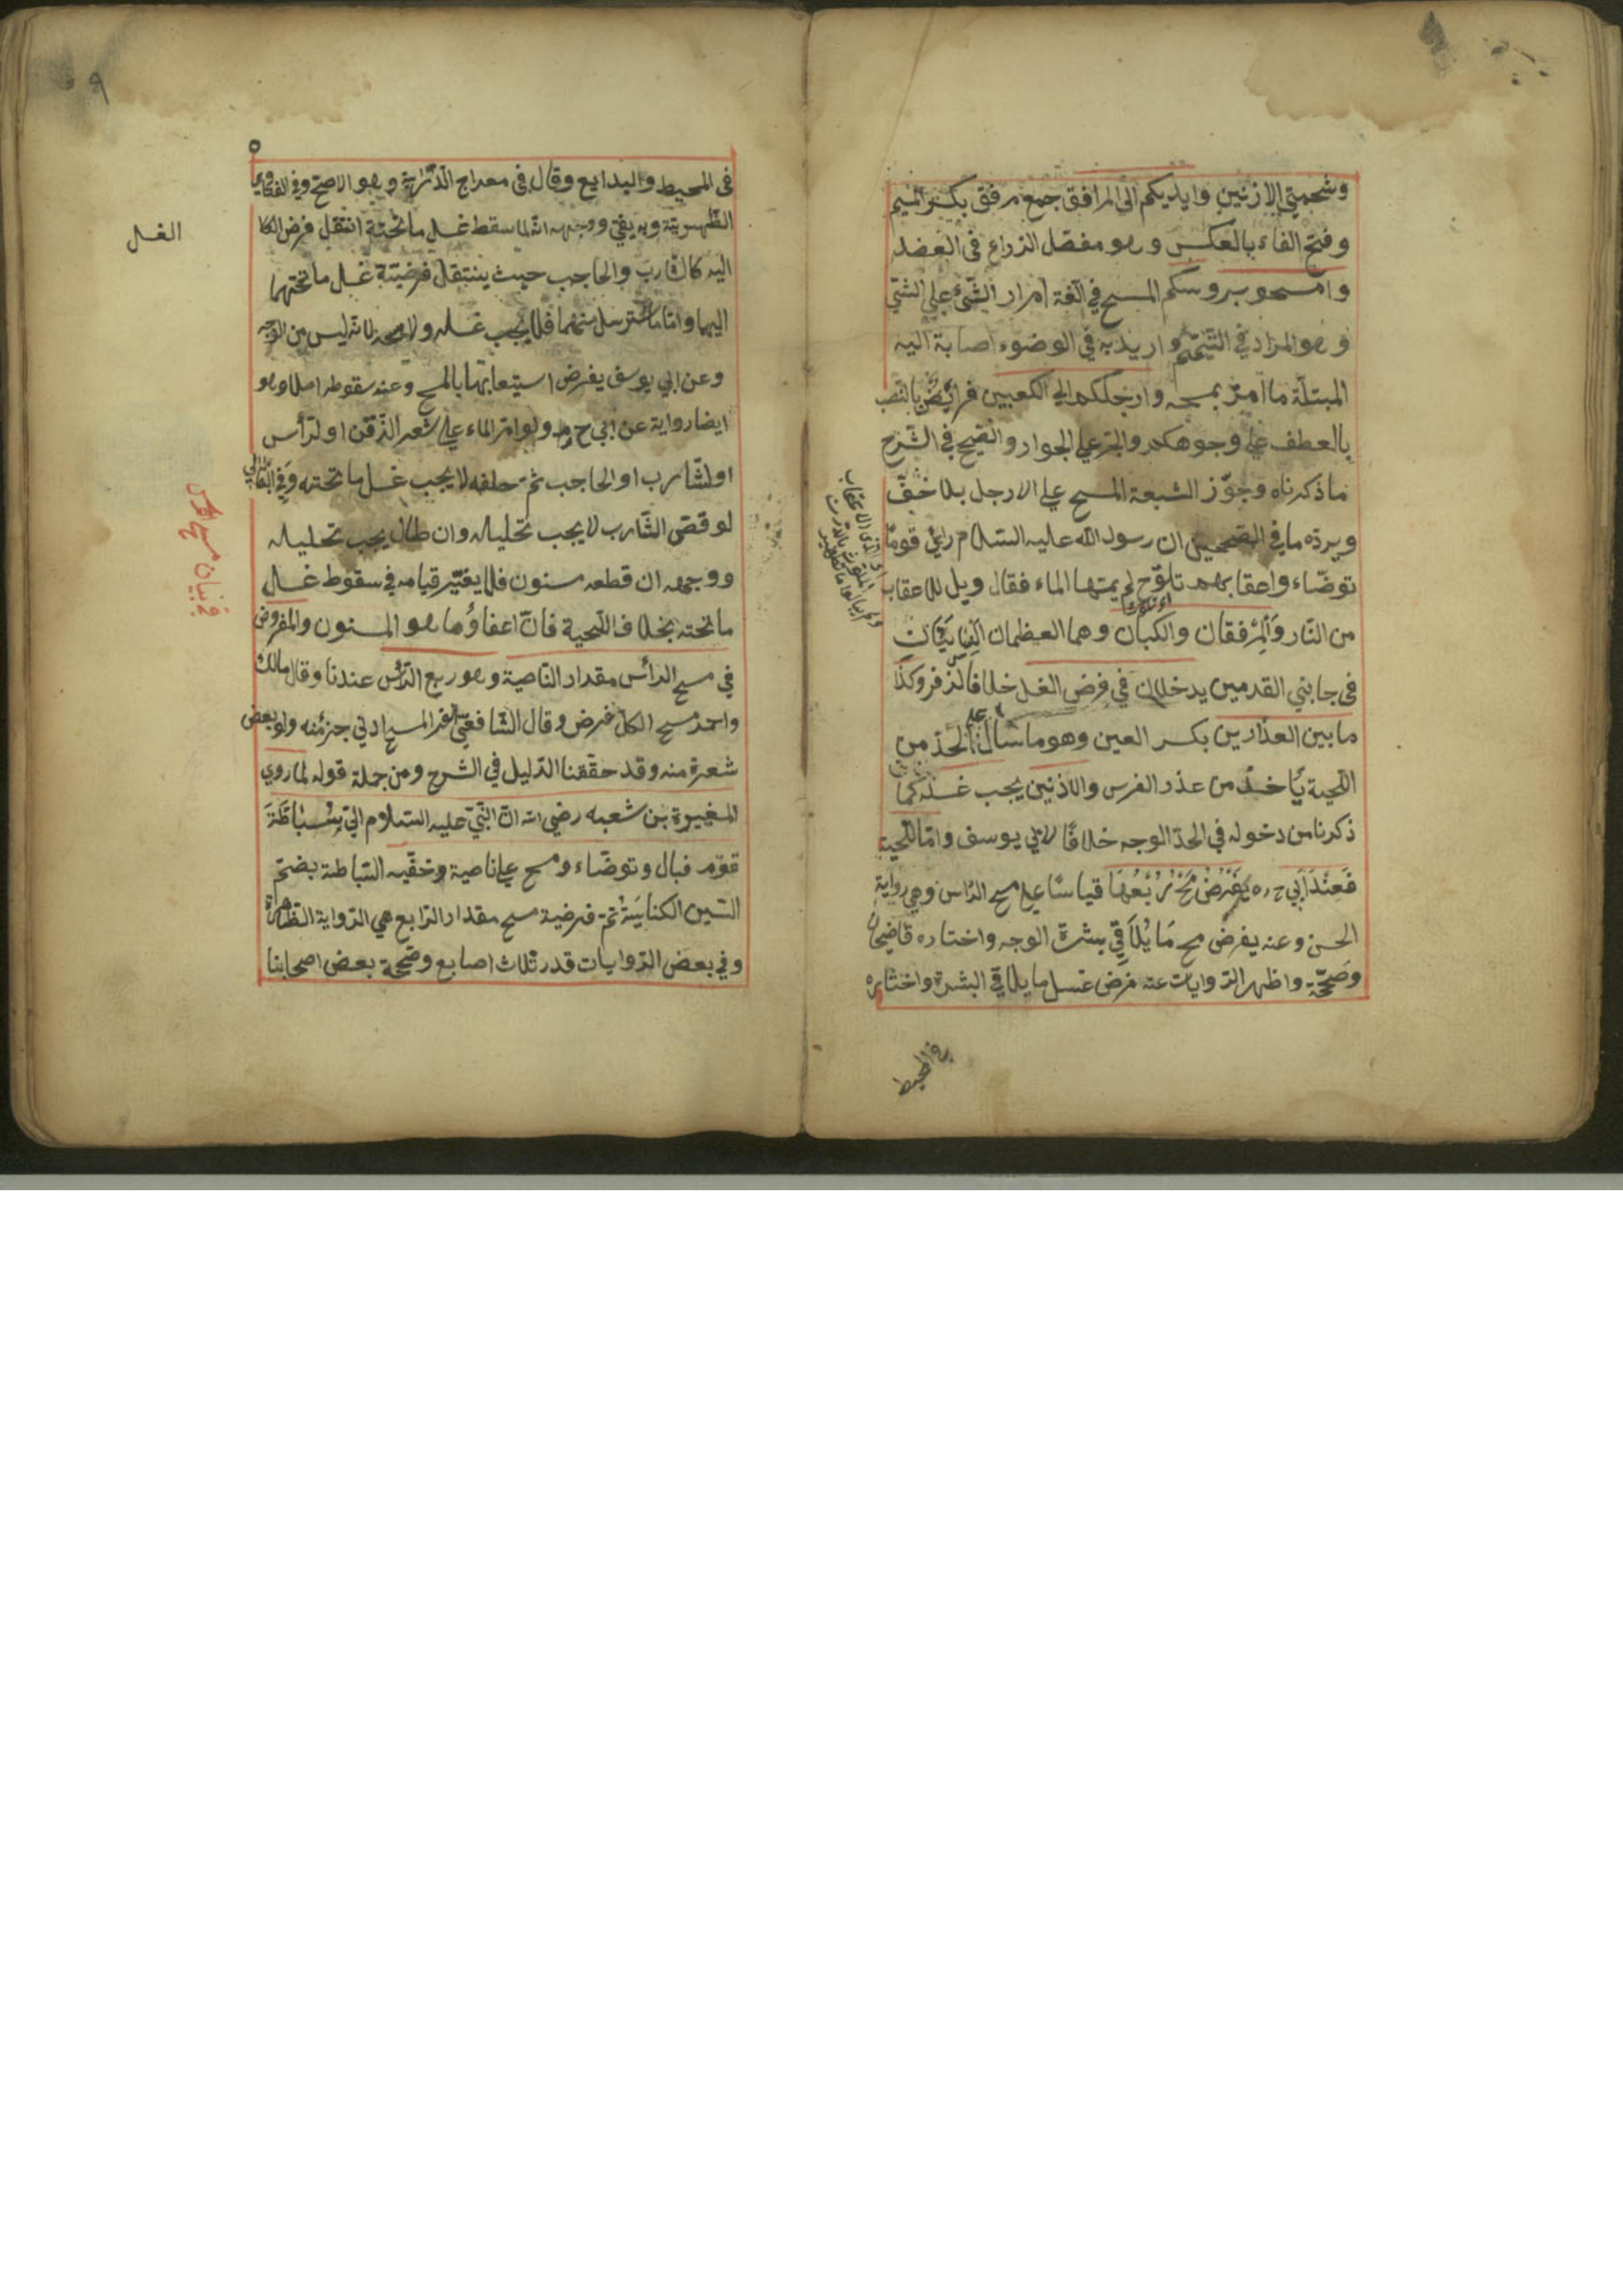 وشحمتي الاذنين وايديكم الى المرافق جمع مرفق بكسر الميم
وفتح الفاء بالعكس وهو مفصل الذراع في العضد
وامسحو بروسكم المسح في الّلغة امرار الشّئ على الشئ
وهو المراد في التّيمّم واريد به في الوضوء اصابة اليد
المبتلّة ما امرّ بمسحه وارجلكم الى الكعبين فرائض بالنّصب
بالعطف على وجوهكم والجرّ على الجوار والصّحيح في الشّرح
ما ذكرناه وجوّز الشيعة المسح على الارجل بلا خفّ
ويردّه ما في الصّحيحين ان رسول الله عليه السّلام رائ قومًا
توضّاء واعقابهم تلوّح لم يمسّها الماء فقال ويل للاعقاب
من النّار وَالْمِرْفقان والكعبان وهما العظمان النّاتيان
في جانبي القدمين يدخلان في فرض الغسل خلافا لزفر وكذا
ما بين العذارين بكسر العين وهو ما سال على الخدّ من
اللّحية يأخذ من عذار الفرس والاذنين يجب غسله كما
ذكرنا من دخوله في الحدّ الوجه خلافًا لابي يوسف وامّا اللّحية
فَعِنْدَ اَبي ح ره يَفْرَضُ مَسْحُ رُبْعُهَا قياسًا على مسح الرّاس وهي رواية
الحسن وعنه يفرض مسح مَا يُلَاقِي بشرة الوجه واختاره قاضيخان
وصَحّحَه واظهر الرّوايات عنه فرض غسل ما يلاقي البشرة واختاره
في المحيط
في المحيط والبدايع وقال في معراج الدّراية وهو الاصحّ وفي الفتاوى
الظّهيريّة وبه يفتى ووجهه انّه لما سقط غسل ما تحته انتقل فرض
اليه كالشّارب والحاجب حيث ينتقل فرضيّة غسل ما تحتهما
اليهما وامّا ما استرسل منهما فلا يجب غسله ولا مسحه لانّه ليس من الوجه
وعن ابي يوسف يفرض استيعابهَا بالمسح وعنه سقوطه اصلا وهو
ايضا رواية عن ابي ح ولو امرّ الماء على شعر الذّقن او الرّأس
او الشّارب او الحاجب ثمّ حلقه لا يجب غسل ما تحته وَفي البقالي
لو قصّ الشّارب لا يجب تخليله وان طال يجب تخليله
ووجهه ان قطعه مسنون فلا يعتبر قيامه في سقوط غسل
ما تحته بخلاف اللّحية فانّ اعفاوُها هو المسنون والمفروض
في مسح الرأس مقدار النّاصية وهو ربع الرّأس عندنا وقال مالك
واحمد مسح الكلّ فرض وقال الشّافعيّ ادني جزء منه ولو بعض
شعرة منه وقد حقّقنا الدّليل في الشرح ومن جملة قوله لما روي
المغيرة بن شعبه رضي الله انّ النّبيّ عليه السّلام اتي سُبَاطَةَ
قوّم فبال وتوضّاء ومسح على ناصية وخفّيه السّباطة بضمّ
السّين الكناسَةُ ثمّ فرضية مسح مقدار الرّابع هي الرّواية الظّاهرة
وفي بعض الرّوايات قدر ثلاث اصابع وصحّحه بعض اصحابنا
الغسل
في بيان مسح الرأس